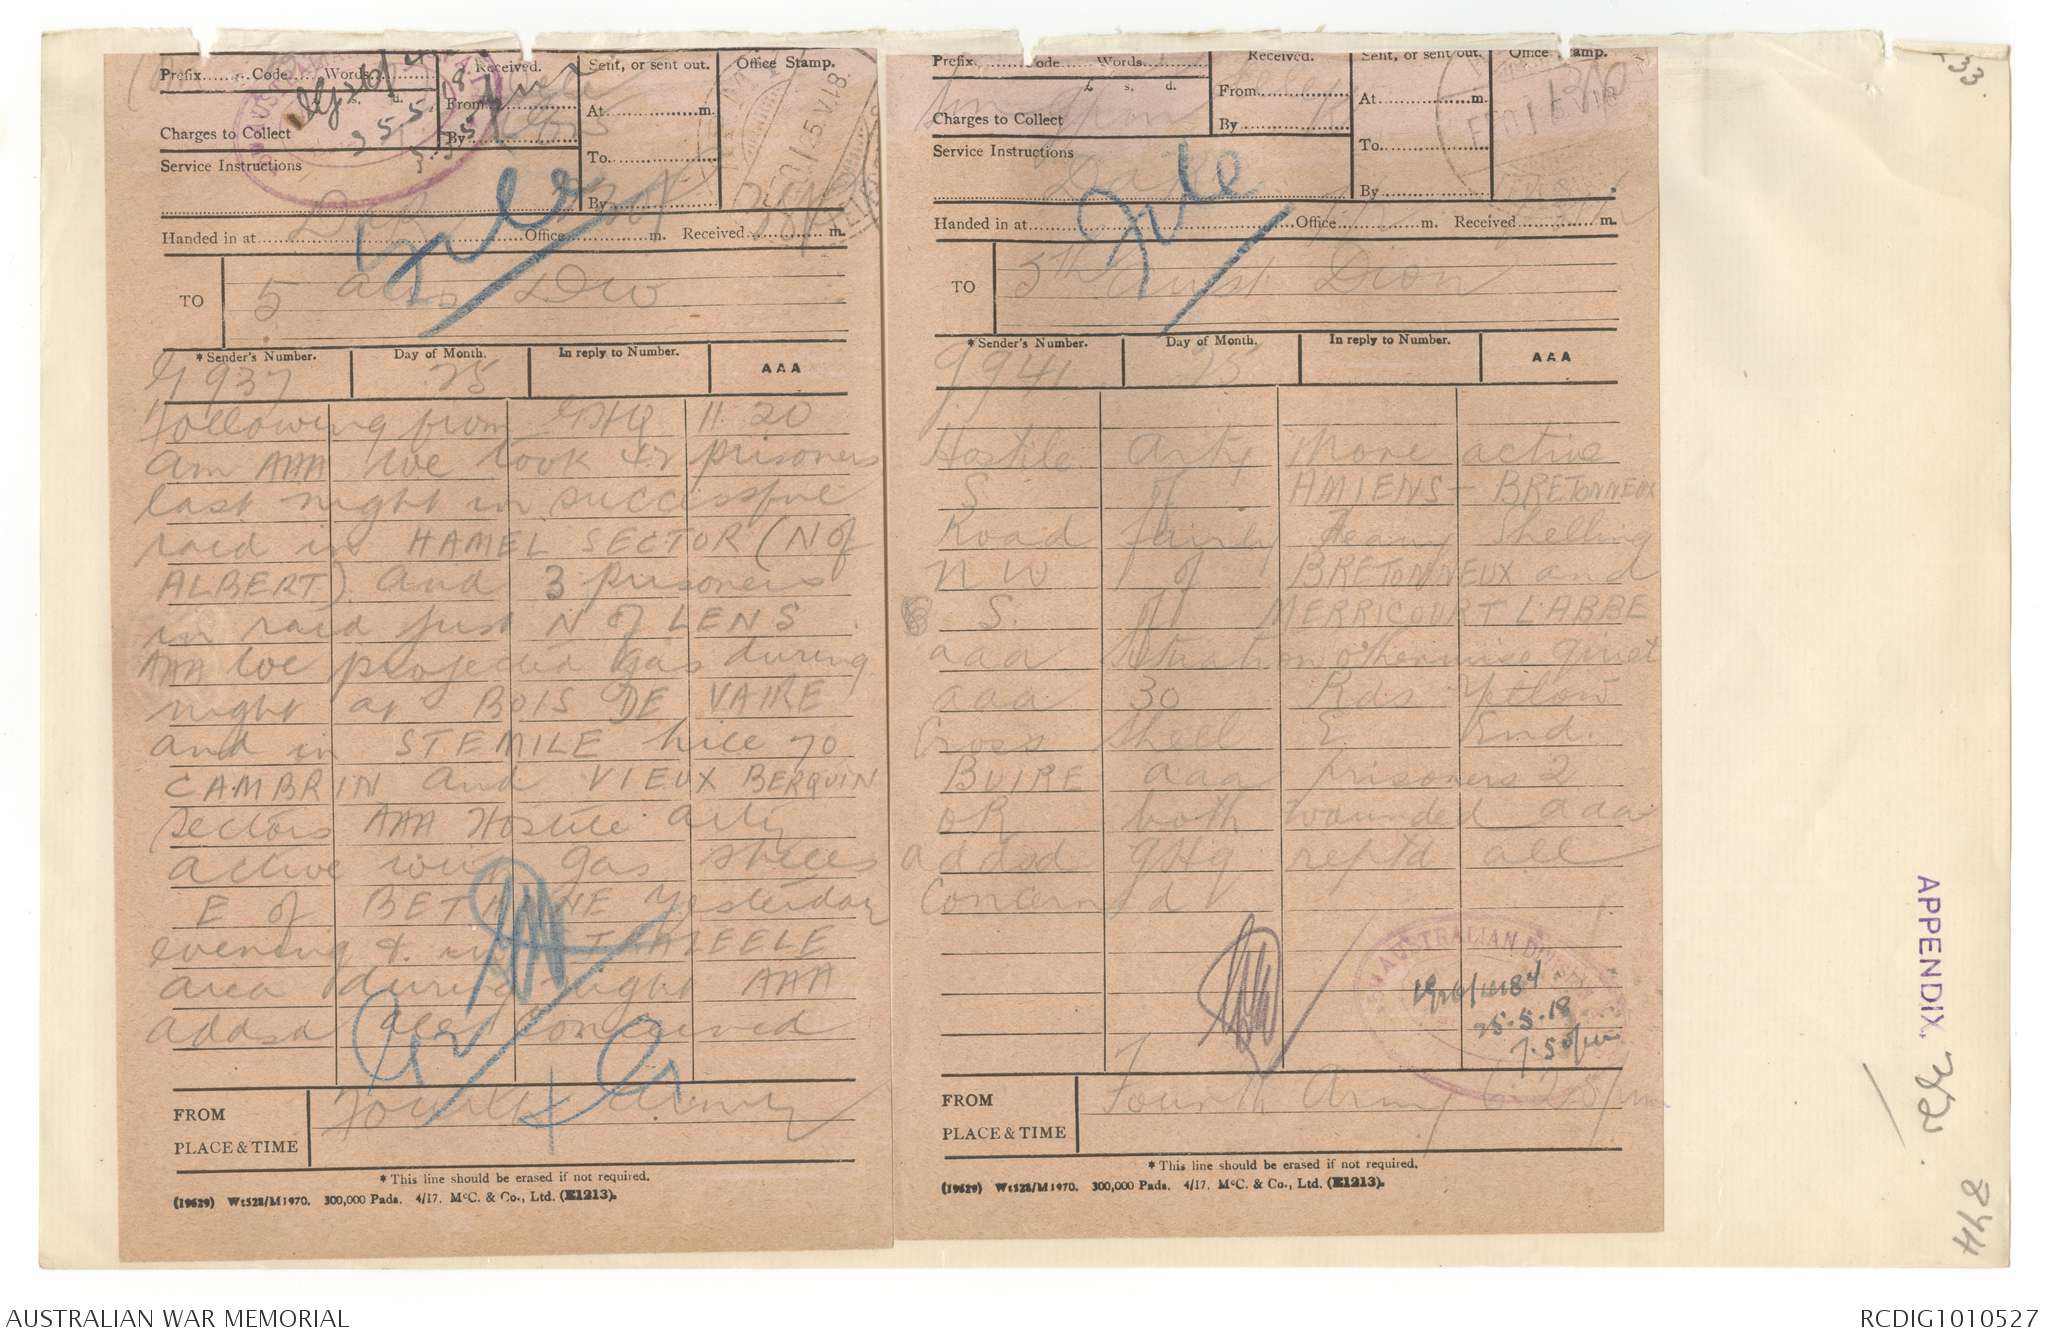 Prefix Code Words
Received.
Sent, or sent out.
Office Stamp.
£ s. d.
From
At m.
Charges to Collect
By
25.5.18
Service Instructions
To
By
File
Handed in at Office m. Received m.
TO
5 Aus Div
* Sender's Number.
Day of Month.
In reply to Number.
AAA
G 937
25
Following from GHQ 11.20
am AAA We took 42 prisoners
last night in successful
raid in HAMEL SECTOR (N of
ALBERT) and 3 prisoners
in raid just N of LENS
AAA We projected gas during
night at BOIS DE VAIRE
and in STEMILE hill 70
CAMBRIN and VIEUX BERQUIN
Sectors AAA Hostile arty
active with gas shells
E of BETHUNE Yesterday
evening &
area during night AAA
addsd all concerned
FROM
PLACE & TIME
Fourth Army
* This line should be erased if not required.
(19629) Wt528/M1970. 300,000 Pads. 4/17. McC. & Co., Ltd. (E1213).
Prefix Code Words
Received.
Sent, or sent out.
Office Stamp.
£ s. d.
From
At m.
Charges to Collect
By
Service Instructions
To
By
File
Handed in at Office m. Received m.
TO
5th Aust Dion
* Sender's Number.
Day of Month.
In reply to Number.
AAA
G 941
25
Hostile arty more active
S of AMIENS - BRETONNEUX
Road fairly Heavy Shelling
NW of BRETONNEUX and
S. of MERRICOURT L'ABBE
aaa Situation otherwise quiet
aaa 30 Rds Yellow
Cross shell E End.
BUIRE aaa prisoners 2
OR both wounded aaa
addsd GHQ reptd all
Concerned
AUSTRALIAN DIVISION
25.5.18
7.50pm
FROM
PLACE & TIME
Fourth Army 6.25pm
* This line should be erased if not required.
(19629) Wt528/M1970. 300,000 Pads. 4/17. McC. & Co., Ltd. (E1213).
33.
APPENDIX,
AUSTRALIAN WAR MEMORIAL
RCDIG1010527